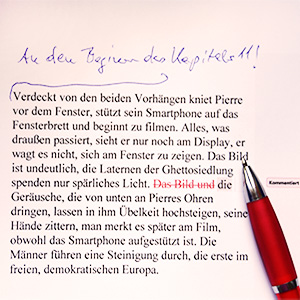 An den Beginn des Kapitels 11!
Verdeckt von den beiden Vorhängen kniet Pierre
vor dem Fenster, stützt sein Smartphone auf das
Fensterbrett und beginnt zu filmen. Alles, was
draußen passiert, sieht er nur noch am Display, er
wagt es nicht, sich am Fenster zu zeigen. Das Bild
ist undeutlich, die Laternen der Ghettosiedlung
spenden nur spärliches Licht. Das Bild und die
Kommentiert
Geräusche, die von unten an Pierres Ohren
dringen, lassen in ihm Übelkeit hochsteigen, seine
Hände zittern, man merkt es später am Film,
obwohl das Smartphone aufgestützt ist. Die
Männer führen eine Steinigung durch, die erste im
freien, demokratischen Europa.